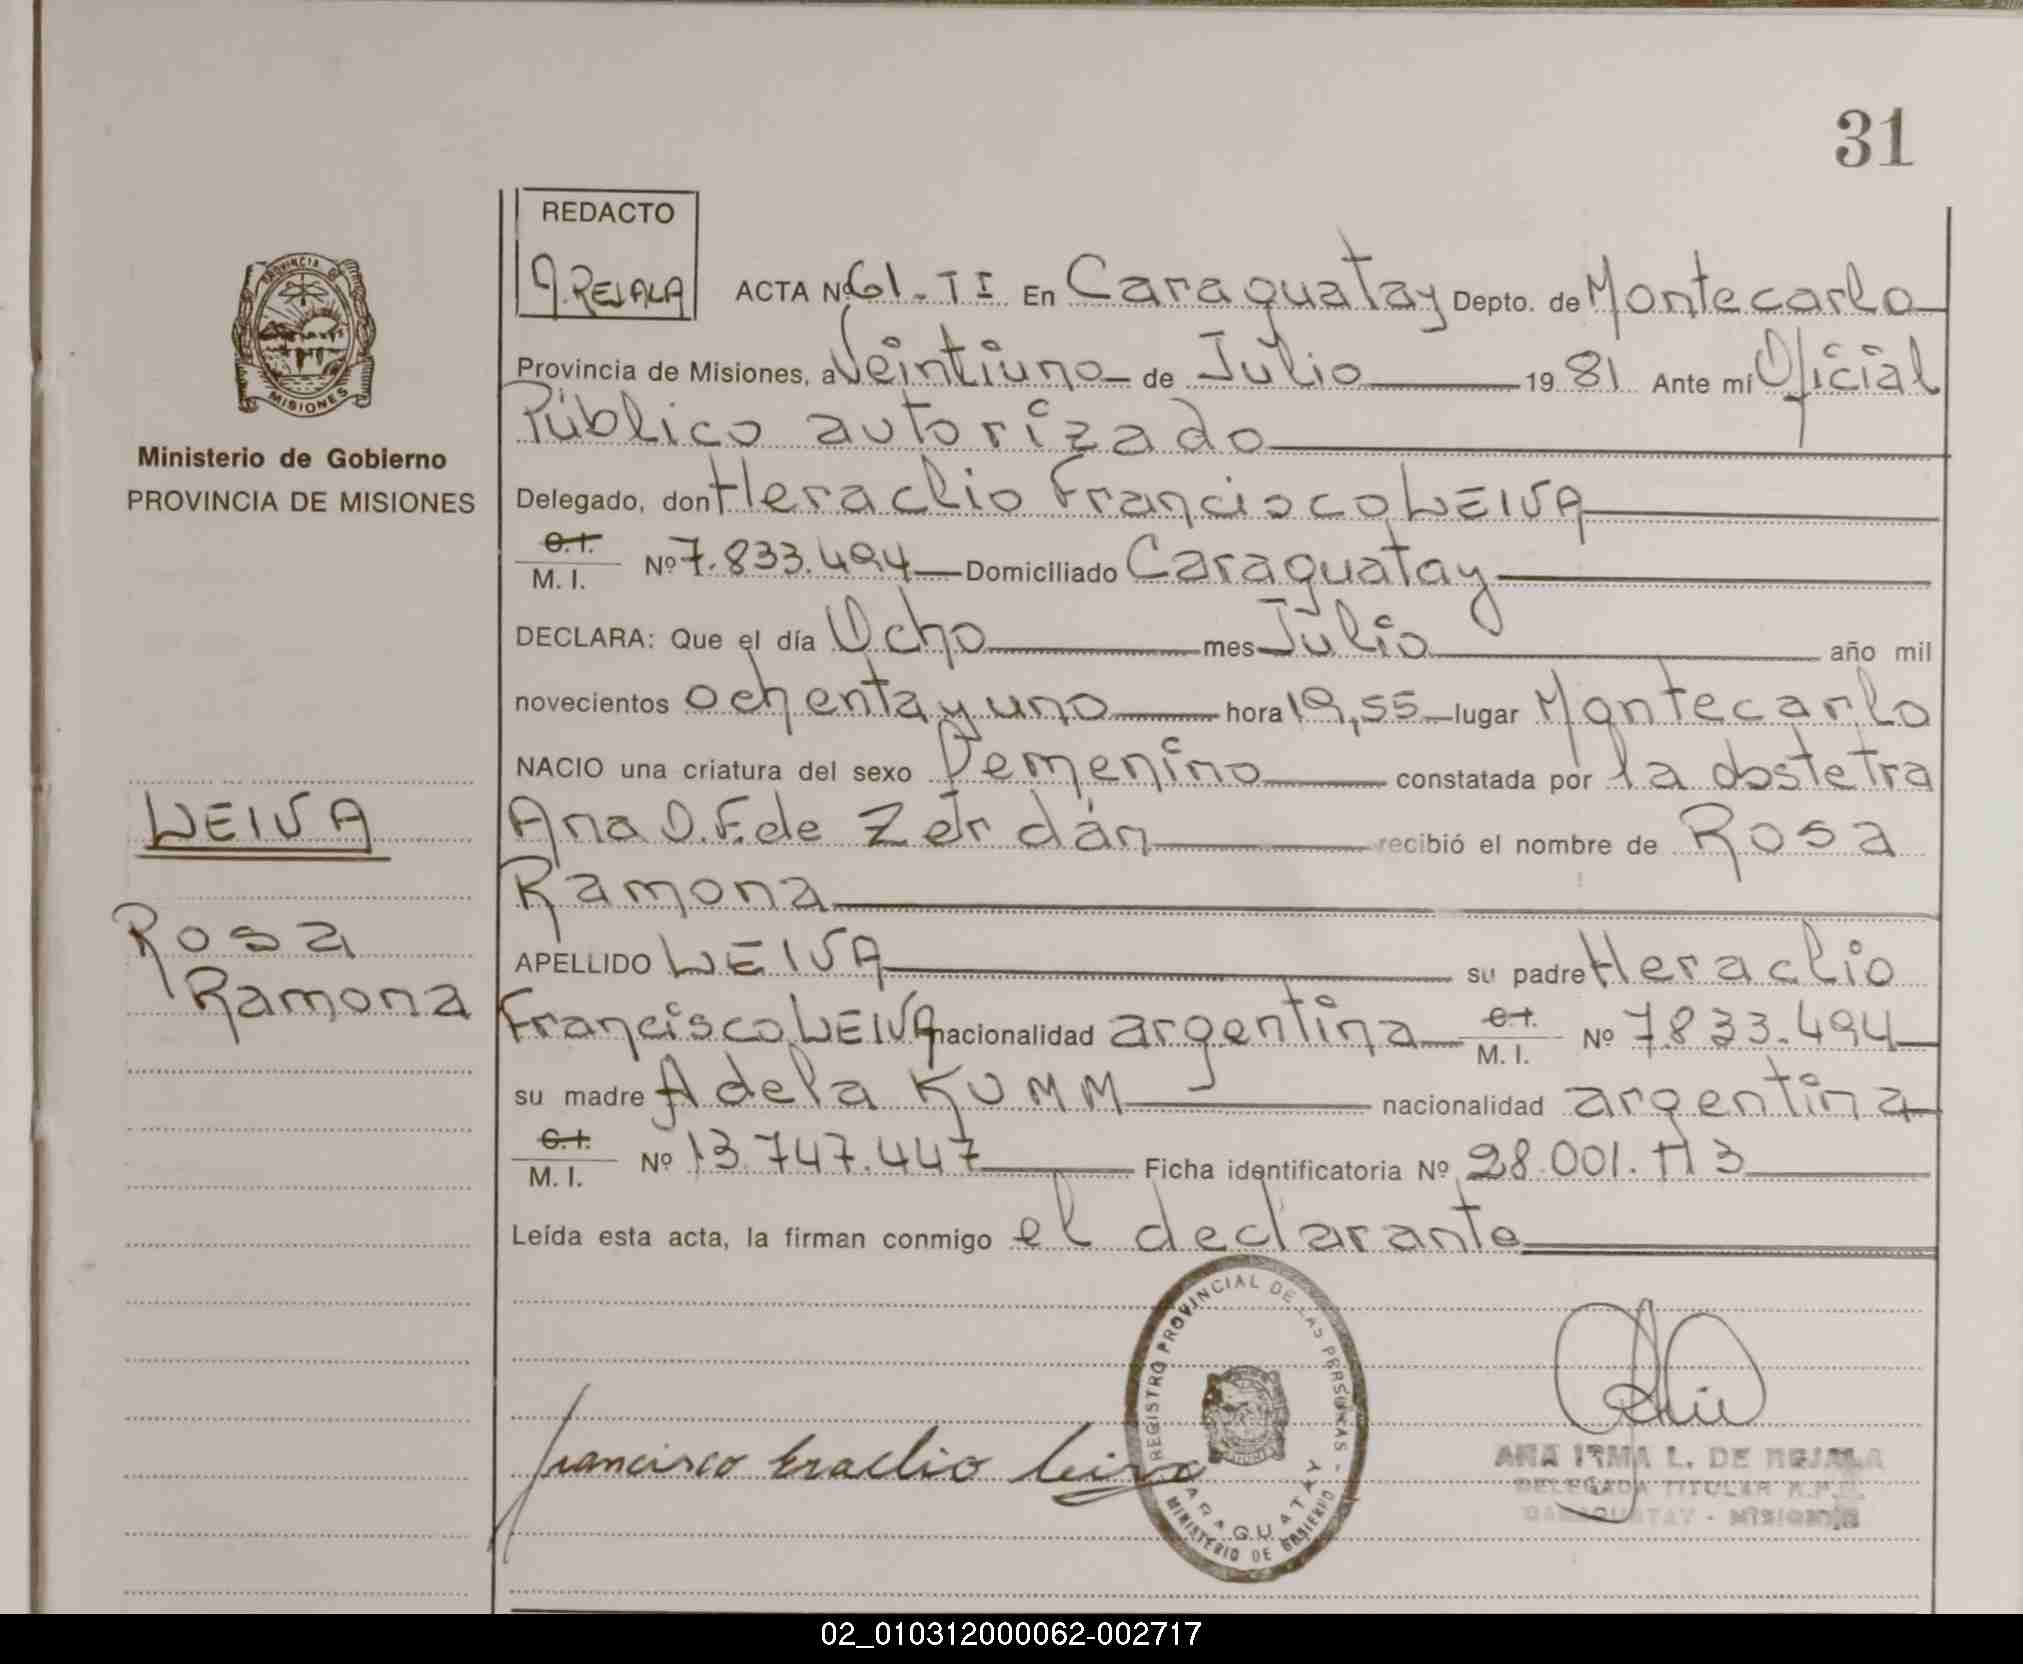 31
REDACTO
A. REJALA
ACTA Nº 61-II En Caraguatay Depto. de Montecarlo
Provincia de Misiones, a Veintiuno de Julio 19 81 Ante mí Oficial
Público autorizado
Delegado, don Heraclio Francisco LEIVA
C.I. M. I. Nº 7.833.494 Domiciliado Caraguatay
DECLARA: Que el día Ocho mes Julio año mil
novecientos ochenta y uno hora 19,55 lugar Montecarlo
NACIO una criatura del sexo Femenino constatada por la obstetra
Ana O. F. de Zerdán recibió el nombre de Rosa
Ramona
APELLIDO LEIVA su padre Heraclio
Francisco LEIVA nacionalidad argentina C.I. M. I. Nº 7.833.494
su madre Adela KUMM nacionalidad argentina
C.I. M. I. Nº 13.747.447 Ficha identificatoria Nº 28.001.113
Leída esta acta, la firman conmigo el declarante
PROVINCIA DE MISIONES
Ministerio de Gobierno
PROVINCIA DE MISIONES
LEIVA
Rosa
Ramona
Francisco Eraclio Leiva
REGISTRO PROVINCIAL DE LAS PERSONAS -
CARAGUATAY
MINISTERIO DE GOBIERNO
ANA IRMA L. DE REJALA
DELEGADA TITULAR R.P.P.
CARAGUATAY - MISIONES
02_010312000062-002717